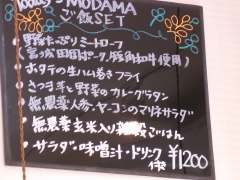 today's MODAMA
ご飯SET
・野菜たっぷりミートローフ
(富ヶ城田園ポーク、鹿角和牛使用)
・ホタテの生ハム巻きフライ
・さつま芋と野菜のカレーグラタン
・無農薬人参、ヤーコンのマリネサラダ
・無農薬玄米入り雑穀ごはん
・サラダ・味噌汁・ドリンク付 ¥1200